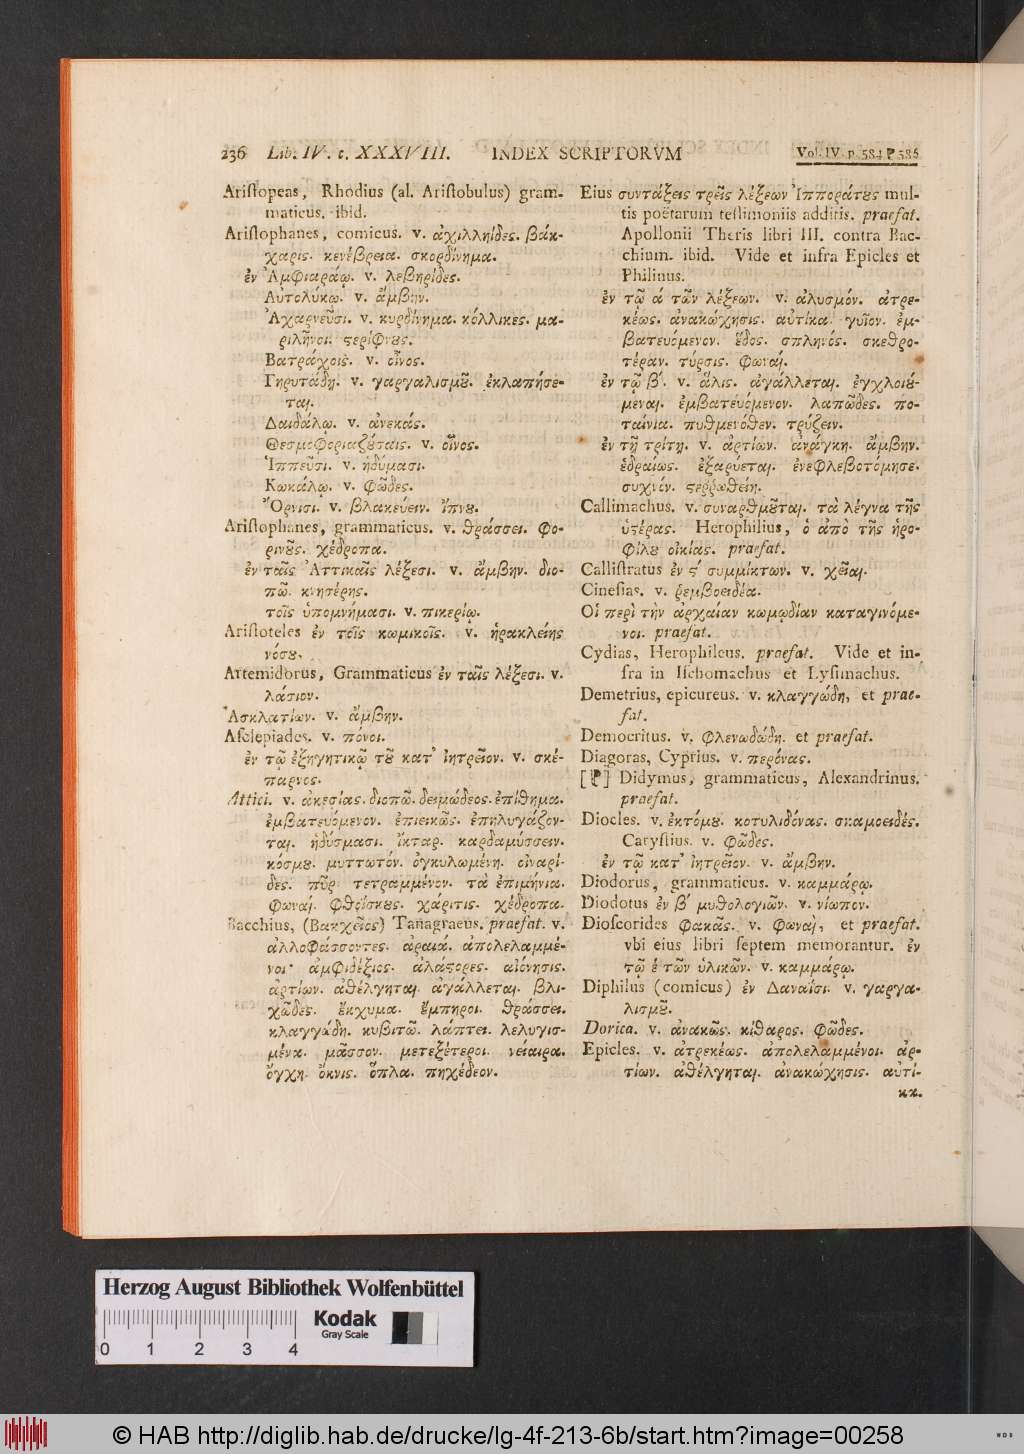 236 Lib. IV. c. XXXVIII. INDEX SCRIPTORVM Vol. IV. p. 584 586
Aristopeas, Rhodius (al. Aristobulus) gram-
maticus. ibid.
Aristophanes, comicus. v. ἀχιλληΐδες. βάκ-
χαρις. κενέβρεια. σκορδίνημα.
ἐν Ἀμφιαράῳ. v. λεβηρίδες.
Αὐτολύκῳ. v. ἄμβην.
Ἀχαρνεῦσι. v. κυρδίνημα. κόλλικες. μα-
ριλῆνοι. στερίφνους.
Βατράχοις. v. οἶνος.
Γηρυτάδῃ. v. γαργαλισμοῦ. ἐκλαπήσε-
ται.
Δαιδάλῳ. v. ἀνεκάς.
Θεσμοφοριαζούσαις. v. οἶνος.
Ἱππεῦσι. v. ἡδύμασι.
Κωκάλῳ. v. φῶδες.
Ὄρνισι. v. βλακεύειν. ἴπνου.
Aristophanes, grammaticus. v. θράσσει. φο-
ρινοῦς. χέδροπα.
ἐν ταῖς Ἀττικαῖς λέξεσι. v. ἄμβην. διο-
πῶ. κνηστέρης.
τοῖς ὑπομνήμασι. v. πικερίῳ.
Aristoteles ἐν τοῖς κωμικοῖς. v. ἡρακλείης
νόσου.
Artemidorus, Grammaticus ἐν ταῖς λέξεσι. v.
λάσιον.
Ἀσκλατίων. v. ἄμβην.
Asclepiades. v. πόνοι.
ἐν τῷ ἐξηγητικῷ τοῦ κατ' ἰητρεῖον. v. σκέ-
παρνος.
Attici. v. ἀκεσίας. διοπῶ. δειμώδεος. ἐπίθημα.
ἐμβατευόμενον. ἐπιεικῶς. ἐπηλυγάζον-
ται. ἡδύσμασι. ἴκταρ. καρδαμύσσειν.
κόσμου. μυττωτόν. ὀγκυλωμένη. οἰναρί-
δες. πῦρ. τετραμμένον. τὰ ἐπιμήνια.
φωναί. φθοΐσκους. χάριτις. χέδροπα.
Bacchius, (Βακχεῖος) Tanagraeus. praefat. v.
ἀλλοφάσσοντες. ἀραιά. ἀπολελαμμέ-
νοι. ἀμφιδέξιος. ἀλάστορες. αἰόνησις.
ἀρτίων. ἀθέλγηται. ἀγάλλεται. βλι-
χῶδες. ἔκχυμα. ἔμπηροι. θράσσει.
κλαγγώδη. κυβιτῷ. λάπτει. λελυγισ-
μένα. μᾶσσον. μετεξέτεροι. νείαιρα.
ὄγχη. ὄκνις. ὅπλα. πηχέδεον.
Eius συντάξεις τρεῖς λέξεων Ἱπποράτους mul-
tis poëtarum testimoniis additis. praefat.
Apollonii Theris libri III. contra Bac-
chium. ibid. Vide et infra Epicles et
Philinus.
ἐν τῷ ά τῶν λέξεων. v. ἀλυσμόν. ἀτρε-
κέως. ἀνακώχησις. αὐτίκα. γυῖον. ἐμ-
βατευόμενον. ἕδος. σπληνός. σκεθρο-
τέραν. τύρσις. φωναί.
ἐν τῷ β'. v. ἅλις. ἀγάλλεται. ἐγχλοιού-
μεναι. ἐμβατευόμενον. λαπῶδες. πο-
ταίνια. πυθμενόθεν. τρύζειν.
ἐν τῇ τρίτῃ. v. ἀρτίων. ἀνάγκη. ἄμβην.
ἑδραίως. ἐξαρύεται. ἐνεφλεβοτόμησε.
συχνόν. στερρωθείη.
Callimachus. v. συναρθμοῦται. τὰ λέγνα τῆς
ὑστέρας. Herophilius, ὁ ἀπὸ τῆς ἡρο-
φίλου οἰκίας. praefat.
Callistratus ἐν ϛ' συμμίκτων. v. χεῖαι.
Cinesias. v. ῥεμβοειδέα.
Οἱ περὶ τὴν ἀρχαίαν κωμῳδίαν καταγινόμε-
νοι. praefat.
Cydias, Herophileus. praefat. Vide et in-
fra in Ischomachus et Lysimachus.
Demetrius, epicureus. v. κλαγγώδη, et prae-
fat.
Democritus. v. φλενωδώδη. et praefat.
Diagoras, Cyprius. v. περόνας.
[] Didymus, grammaticus, Alexandrinus.
praefat.
Diocles. v. ἐκτόμου. κοτυλιδόνας. σκαμοειδές.
Carystius. v. φῶδες.
ἐν τῷ κατ' ἰητρεῖον. v. ἄμβην.
Diodorus, grammaticus. v. καμμάρῳ.
Diodotus ἐν β' μυθολογιῶν. v. νίωπον.
Dioscorides φακᾶς. v. φωναί, et praefat.
vbi eius libri septem memorantur. ἐν
τῷ έ τῶν ὑλικῶν. v. καμμάρῳ.
Diphilus (comicus) ἐν Δαναΐσι. v. γαργα-
λισμοῦ.
Dorica. v. ἀνακῶς. κίθαρος. φῶδες.
Epicles. v. ἀτρεκέως. ἀπολελαμμένοι. ἀρ-
τίων. ἀθέλγηται. ἀνακώχησις. αὐτί-
κα.
Herzog August Bibliothek Wolfenbüttel
Kodak
Gray Scale
0 1 2 3 4
© HAB http://diglib.hab.de/drucke/lg-4f-213-6b/start.htm?image=00258